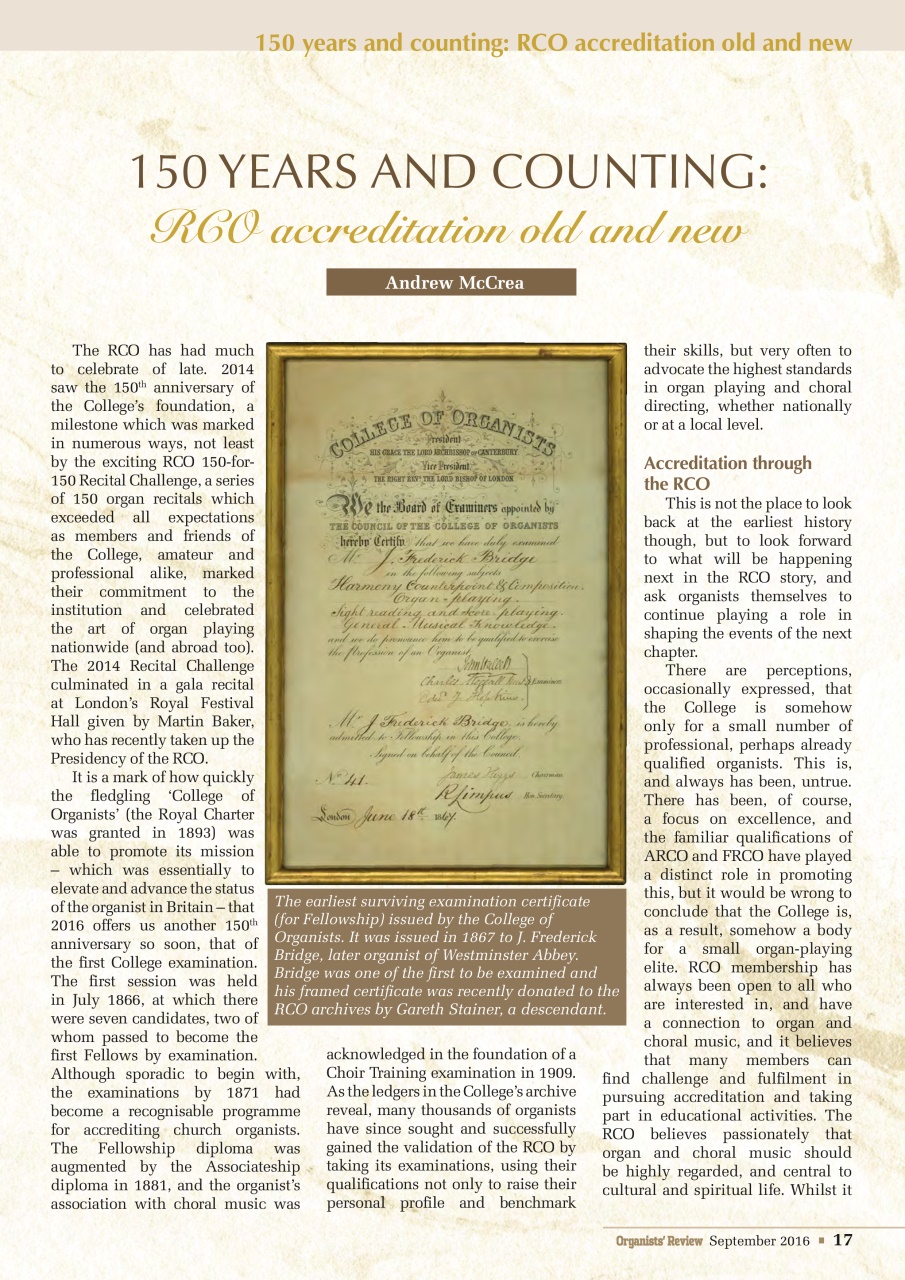 150 years and counting: RCO accreditation old and new
150 YEARS AND COUNTING:
RCO accreditation old and new
Andrew McCrea
The RCO has had much
to celebrate of late. 2014
saw the 150th anniversary of
the College's foundation, a
milestone which was marked
in numerous ways, not least
by the exciting RCO 150-for-
150 Recital Challenge, a series
of 150 organ recitals which
exceeded all expectations
as members and friends of
the College, amateur and
professional alike, marked
their commitment to the
institution and celebrated
the art of organ playing
nationwide (and abroad too).
The 2014 Recital Challenge
culminated in a gala recital
at London's Royal Festival
Hall given by Martin Baker,
who has recently taken up the
Presidency of the RCO.
It is a mark of how quickly
the fledgling 'College of
Organists' (the Royal Charter
was granted in 1893) was
able to promote its mission
– which was essentially to
elevate and advance the status
of the organist in Britain – that
2016 offers us another 150th
anniversary so soon, that of
the first College examination.
The first session was held
in July 1866, at which there
were seven candidates, two of
whom passed to become the
first Fellows by examination.
Although sporadic to begin with,
the examinations by 1871 had
become a recognisable programme
for accrediting church organists.
The Fellowship diploma was
augmented by the Associateship
diploma in 1881, and the organist's
association with choral music was
COLLEGE OF ORGANISTS
President
HIS GRACE THE LORD ARCHBISHOP OF CANTERBURY
Vice President
THE RIGHT REVD. THE LORD BISHOP OF LONDON
We the Board of Examiners appointed by
THE COUNCIL OF THE COLLEGE OF ORGANISTS
hereby Certify that we have duly examined
Mr. J. Frederick Bridge
in the following subjects
Harmony Counterpoint & Composition.
Organ-playing.
Sight reading and Score playing.
General Musical Knowledge.
and we do pronounce him to be qualified to exercise
the Profession of an Organist.
Examiners
Mr. J Frederick Bridge, is hereby
admitted to Fellowship in this College.
Signed on behalf of the Council.
No. 41. James Higgs Chairman
R Limpus Hon. Secretary
London June 18th 1867.
The earliest surviving examination certificate
(for Fellowship) issued by the College of
Organists. It was issued in 1867 to J. Frederick
Bridge, later organist of Westminster Abbey.
Bridge was one of the first to be examined and
his framed certificate was recently donated to the
RCO archives by Gareth Stainer, a descendant.
acknowledged in the foundation of a
Choir Training examination in 1909.
As the ledgers in the College's archive
reveal, many thousands of organists
have since sought and successfully
gained the validation of the RCO by
taking its examinations, using their
qualifications not only to raise their
personal profile and benchmark
their skills, but very often to
advocate the highest standards
in organ playing and choral
directing, whether nationally
or at a local level.
Accreditation through
the RCO
This is not the place to look
back at the earliest history
though, but to look forward
to what will be happening
next in the RCO story, and
ask organists themselves to
continue playing a role in
shaping the events of the next
chapter.
There are perceptions,
occasionally expressed, that
the College is somehow
only for a small number of
professional, perhaps already
qualified organists. This is,
and always has been, untrue.
There has been, of course,
a focus on excellence, and
the familiar qualifications of
ARCO and FRCO have played
a distinct role in promoting
this, but it would be wrong to
conclude that the College is,
as a result, somehow a body
for a small organ-playing
elite. RCO membership has
always been open to all who
are interested in, and have
a connection to organ and
choral music, and it believes
that many members can
find challenge and fulfilment in
pursuing accreditation and taking
part in educational activities. The
RCO believes passionately that
organ and choral music should
be highly regarded, and central to
cultural and spiritual life. Whilst it
Organists' Review September 2016 ■ 17